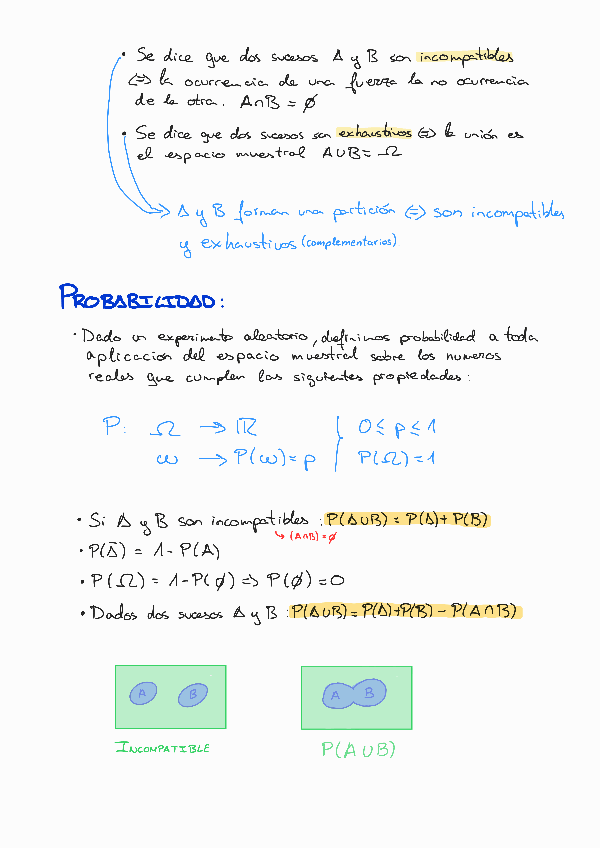 • Se dice que dos sucesos A y B son incompatibles
⇔ la ocurrencia de una fuerza la no ocurrencia
de la otra. A∩B = ∅
• Se dice que dos sucesos son exhaustivos ⇔ la unión es
el espacio muestral A∪B = Ω
→ A y B forman una partición ⇔ son incompatibles
y exhaustivos (complementarios)
PROBABILIDAD:
• Dado un experimento aleatorio, definimos probabilidad a toda
aplicación del espacio muestral sobre los numeros
reales que cumplen las siguientes propiedades:
P: Ω → ℝ | 0 ≤ p ≤ 1
ω → P(ω) = p | P(Ω) = 1
• Si A y B son incompatibles: P(A∪B) = P(A) + P(B)
↳ (A∩B) = ∅
• P(Ā) = 1 - P(A)
• P(Ω) = 1 - P(∅) ⇒ P(∅) = 0
• Dados dos sucesos A y B: P(A∪B) = P(A) + P(B) - P(A∩B)
A B
A B
INCOMPATIBLE
P(A∪B)